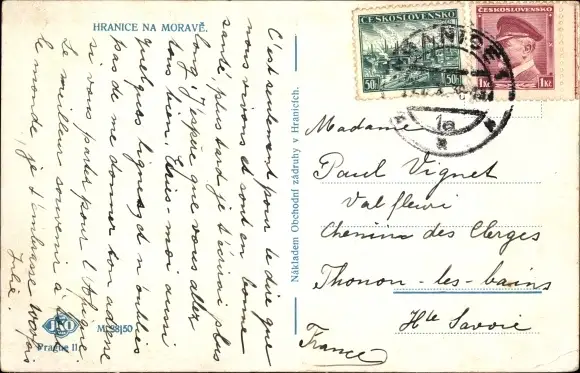 HRANICE NA MORAVĚ.
C'est seulement pour te dire que
nous vivons et sont en bonne
santé, plus tard je t'écrirai plus
long, J'espère que vous allez
tous bien, Ecris-moi aussi
quelques lignes, et n'oublies
pas de me donner ton adresse
si vous partez pour l'Afrique
Le meilleur souvenir à tout
le monde, je t'embrasse
Julie.
JKO
M 38|50
Prague II.
Nákladem Obchodní zádruhy v Hranicích.
ČESKOSLOVENSKO
50h 50h
ČESKOSLOVENSKO
1Kč 1Kč
HRANICE 1
1a
Madame
Paul Vignet
Val fleuri
Chemin des Clerges
Thonon-les-bains
Hte Savoie
France